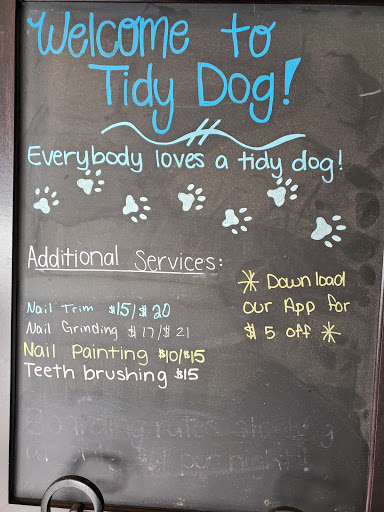 Welcome to
Tidy Dog!
Everybody loves a tidy dog!
Additional Services:
Nail Trim $15/$20
Nail Grinding $17/$21
Nail Painting $10/$15
Teeth brushing $15
* Download
our App for
$5 off *
Boarding rates